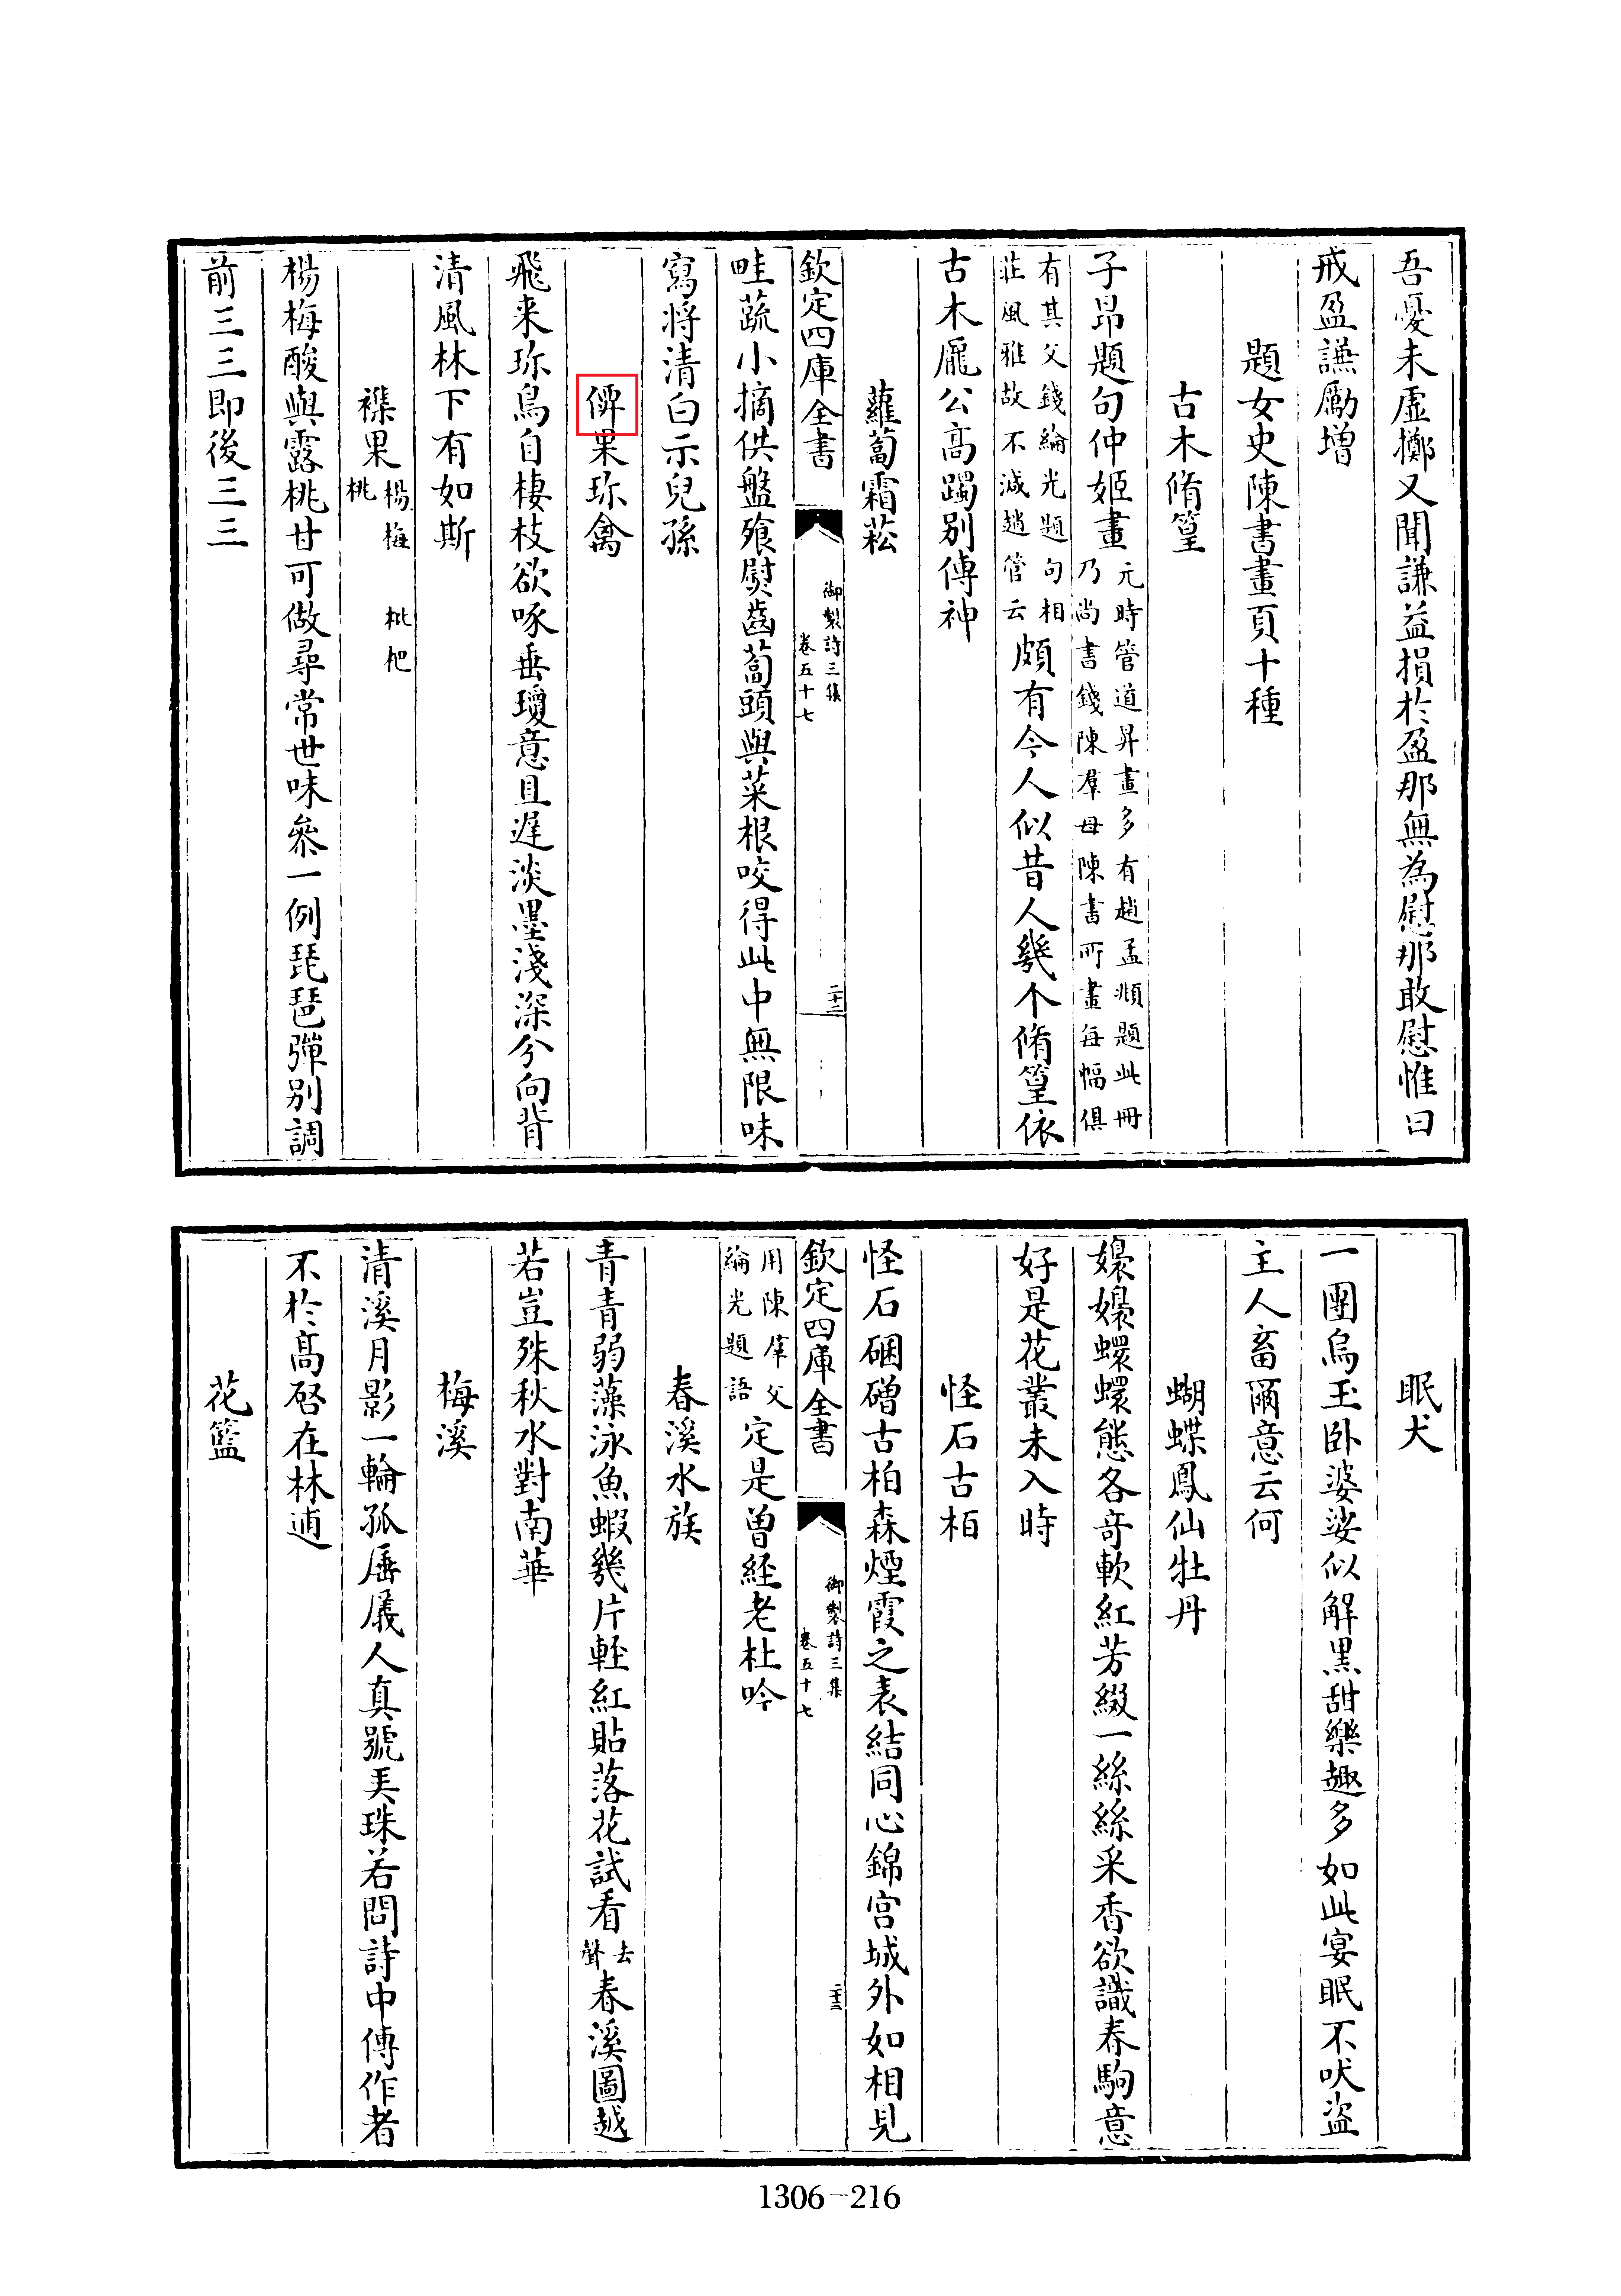 吾憂未虛擲又聞謙益損於盈那無為慰那敢慰惟曰
戒盈謙勵增
題女史陳書畫頁十種
古木脩篁
子昂題句仲姬畫元時管道昇畫多有趙孟頫題此冊乃尚書錢陳羣母陳書所畫每幅俱
有其父錢綸光題句相莊風雅故不減趙管云頗有今人似昔人幾个脩篁依
古木龎公髙躅别傳神
蘿蔔霜菘
欽定四庫全書 御製詩三集 卷五十七 二十二
畦蔬小摘供盤飱熨齒蔔頭與菜根咬得此中無限味
寫將清白示兒孫
果珍禽
飛来珍鳥自棲枝欲啄垂瓊意且遲淡墨淺深分向背
清風林下有如斯
襍果楊梅 枇杷 桃
楊梅酸與露桃甘可做尋常世味叅一例琵琶彈别調
前三三即後三三
眠犬
一團烏玉卧婆娑似解黒甜樂趣多如此宴眠不吠盜
主人畜爾意云何
蝴蝶鳳仙牡丹
嬝嬝蠉蠉態各竒軟紅芳綴一絲絲采香欲識春駒意
好是花叢未入時
怪石古栢
怪石硱磳古柏森煙霞之表結同心錦宫城外如相見
欽定四庫全書 御製詩三集 卷五十七 二十三
用陳羣父綸光題語定是曽経老杜吟
春溪水族
青青弱藻泳魚蝦幾片輕紅貼落花試看去聲春溪圖越
若豈殊秋水對南華
梅溪
清溪月影一輪孤孱儀人真號美珠若問詩中傳作者
不於髙啓在林逋
花籃
1306—216